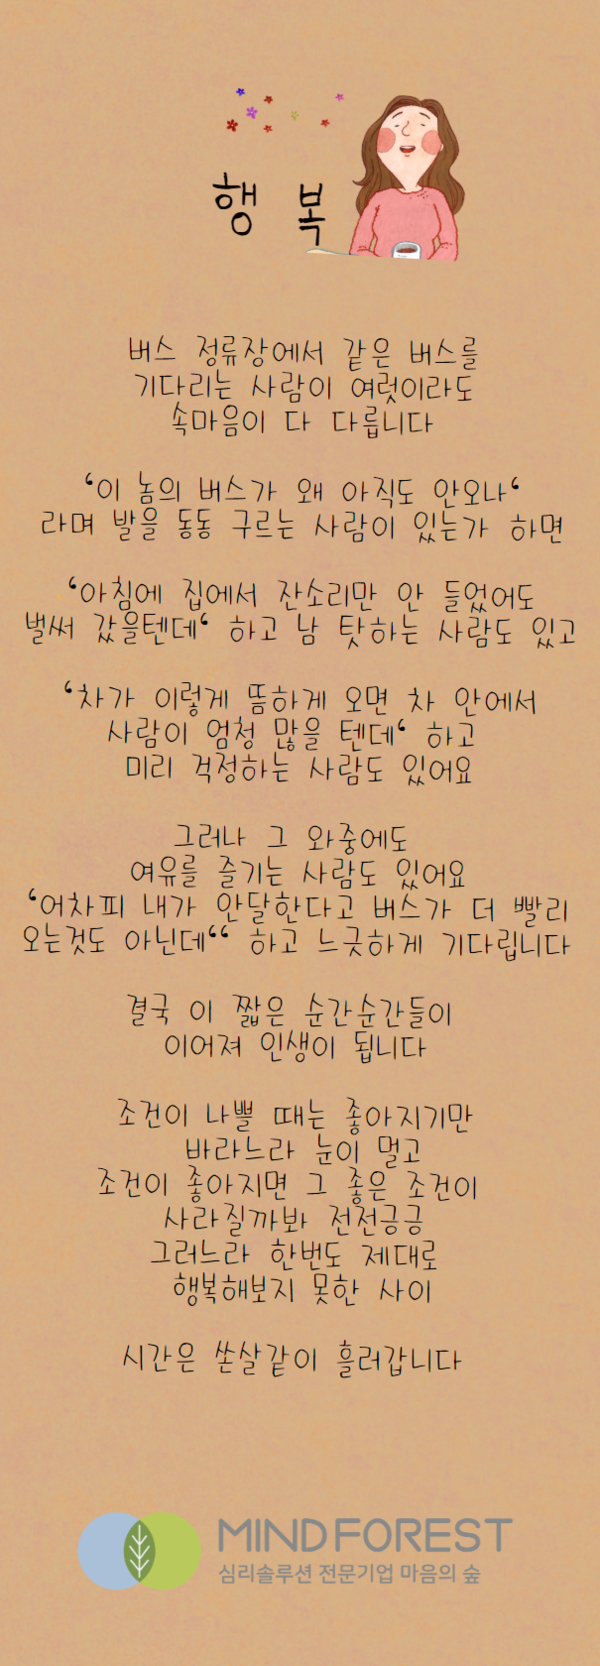 행 복
버스 정류장에서 같은 버스를
기다리는 사람이 여럿이라도
속마음이 다 다릅니다
‘이 놈의 버스가 왜 아직도 안오나‘
라며 발을 동동 구르는 사람이 있는가 하면
‘아침에 집에서 잔소리만 안 들었어도
벌써 갔을텐데‘ 하고 남 탓하는 사람도 있고
‘차가 이렇게 뜸하게 오면 차 안에서
사람이 엄청 많을 텐데‘ 하고
미리 걱정하는 사람도 있어요
그러나 그 와중에도
여유를 즐기는 사람도 있어요
‘어차피 내가 안달한다고 버스가 더 빨리
오는것도 아닌데‘‘ 하고 느긋하게 기다립니다
결국 이 짧은 순간순간들이
이어져 인생이 됩니다
조건이 나쁠 때는 좋아지기만
바라느라 눈이 멀고
조건이 좋아지면 그 좋은 조건이
사라질까봐 전전긍긍
그러느라 한번도 제대로
행복해보지 못한 사이
시간은 쏜살같이 흘러갑니다
MINDFOREST
심리솔루션 전문기업 마음의 숲